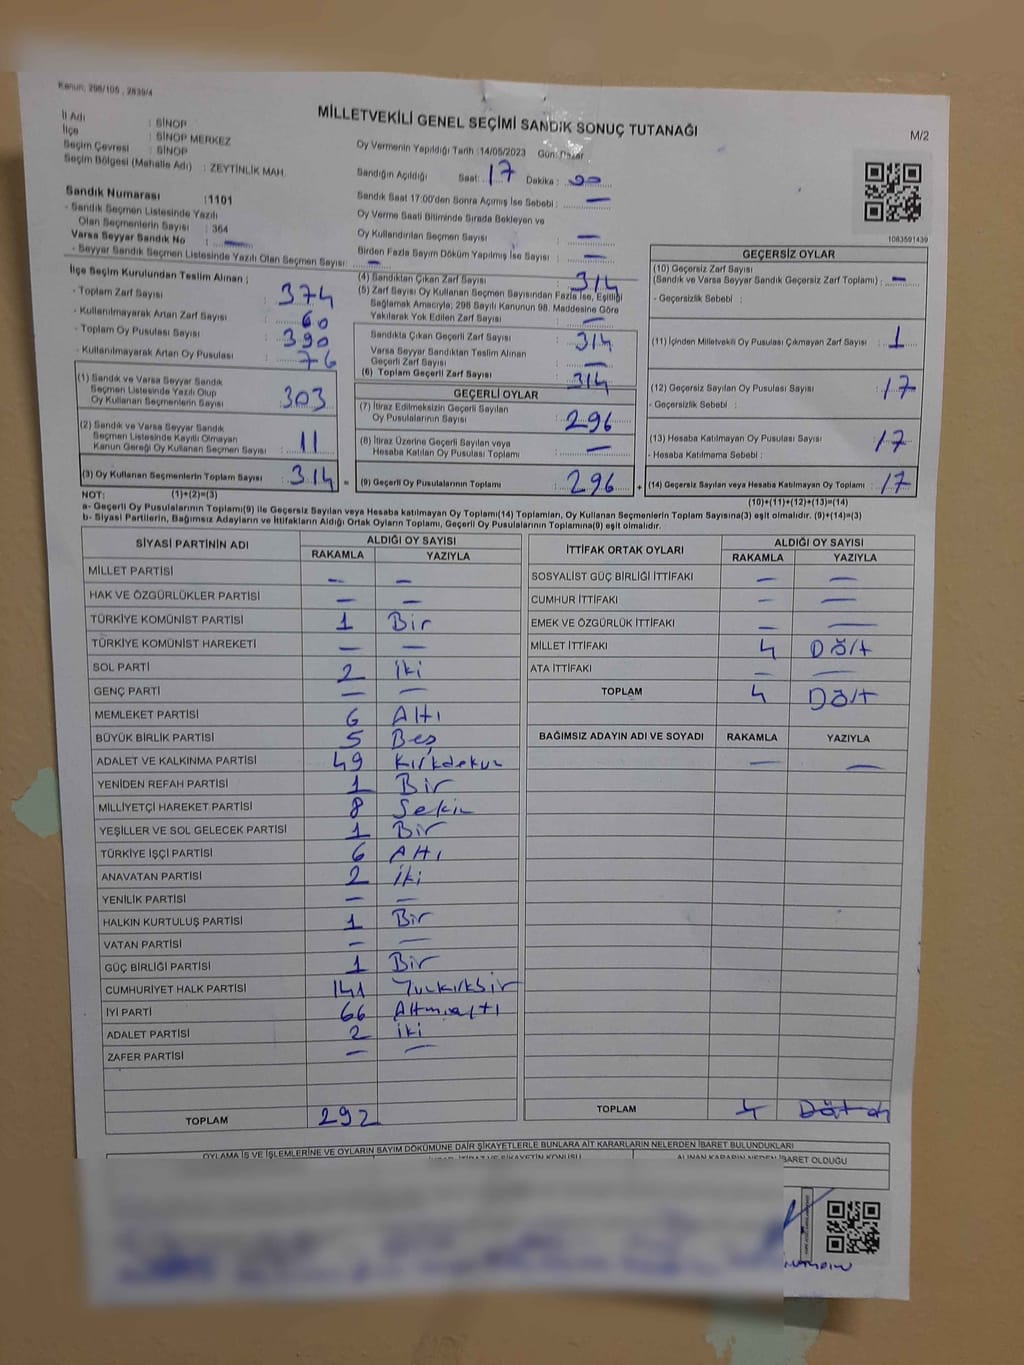 Kanun; 298/105 , 2839/4
MİLLETVEKİLİ GENEL SEÇİMİ SANDIK SONUÇ TUTANAĞI
M/2
İl Adı : SİNOP
İlçe : SİNOP MERKEZ
Seçim Çevresi : SİNOP
Seçim Bölgesi (Mahalle Adı) : ZEYTİNLİK MAH.
Sandık Numarası :1101
- Sandık Seçmen Listesinde Yazılı
Olan Seçmenlerin Sayısı : 364
Varsa Seyyar Sandık No : —
- Seyyar Sandık Seçmen Listesinde Yazılı Olan Seçmen Sayısı : —
Oy Vermenin Yapıldığı Tarih :14/05/2023 Gün: Pazar
Sandığın Açıldığı Saat: 17 Dakika : 00
Sandık Saat 17:00'den Sonra Açımış İse Sebebi : —
Oy Verme Saati Bitiminde Sırada Bekleyen ve
Oy Kullandırılan Seçmen Sayısı : —
Birden Fazla Sayım Döküm Yapılmış İse Sayısı : —
1083591439
İlçe Seçim Kurulundan Teslim Alınan ;
- Toplam Zarf Sayısı : 374
- Kullanılmayarak Artan Zarf Sayısı : 60
- Toplam Oy Pusulası Sayısı : 390
- Kullanılmayarak Artan Oy Pusulası : 76
(1) Sandık ve Varsa Seyyar Sandık
Seçmen Listesinde Yazılı Olup
Oy Kullanan Seçmenlerin Sayısı : 303
(2) Sandık ve Varsa Seyyar Sandık
Seçmen Listesinde Kayıtlı Olmayan
Kanun Gereği Oy Kullanan Seçmen Sayısı : 11
(3) Oy Kullanan Seçmenlerin Toplam Sayısı : 314
(1)+(2)=(3)
(4) Sandıktan Çıkan Zarf Sayısı : 314
(5) Zarf Sayısı Oy Kullanan Seçmen Sayısından Fazla İse, Eşitliği
Sağlamak Amacıyla; 298 Sayılı Kanunun 98. Maddesine Göre
Yakılarak Yok Edilen Zarf Sayısı : —
Sandıkta Çıkan Geçerli Zarf Sayısı : 314
Varsa Seyyar Sandıktan Teslim Alınan
Geçerli Zarf Sayısı : —
(6) Toplam Geçerli Zarf Sayısı : 314
GEÇERLİ OYLAR
(7) İtiraz Edilmeksizin Geçerli Sayılan
Oy Pusulalarının Sayısı : 296
(8) İtiraz Üzerine Geçerli Sayılan veya
Hesaba Katılan Oy Pusulası Toplamı : —
= (9) Geçerli Oy Pusulalarının Toplamı : 296
GEÇERSİZ OYLAR
(10) Geçersiz Zarf Sayısı
(Sandık ve Varsa Seyyar Sandık Geçersiz Zarf Toplamı) : —
- Geçersizlik Sebebi :
(11) İçinden Milletvekili Oy Pusulası Çıkmayan Zarf Sayısı : 1
(12) Geçersiz Sayılan Oy Pusulası Sayısı : 17
- Geçersizlik Sebebi :
(13) Hesaba Katılmayan Oy Pusulası Sayısı : 17
- Hesaba Katılmama Sebebi :
+ (14) Geçersiz Sayılan veya Hesaba Katılmayan Oy Toplamı : 17
(10)+(11)+(12)+(13)=(14)
NOT:
a- Geçerli Oy Pusulalarının Toplamı(9) ile Geçersiz Sayılan veya Hesaba katılmayan Oy Toplamı(14) Toplamları, Oy Kullanan Seçmenlerin Toplam Sayısına(3) eşit olmalıdır. (9)+(14)=(3)
b- Siyasi Partilerin, Bağımsız Adayların ve İttifakların Aldığı Ortak Oyların Toplamı, Geçerli Oy Pusulalarının Toplamına(9) eşit olmalıdır.
SİYASİ PARTİNİN ADI ALDIĞI OY SAYISI
RAKAMLA YAZIYLA
MİLLET PARTİSİ — —
HAK VE ÖZGÜRLÜKLER PARTİSİ — —
TÜRKİYE KOMÜNİST PARTİSİ 1 Bir
TÜRKİYE KOMÜNİST HAREKETİ — —
SOL PARTİ 2 İki
GENÇ PARTİ — —
MEMLEKET PARTİSİ 6 Altı
BÜYÜK BİRLİK PARTİSİ 5 Beş
ADALET VE KALKINMA PARTİSİ 49 Kırkdokuz
YENİDEN REFAH PARTİSİ 1 Bir
MİLLİYETÇİ HAREKET PARTİSİ 8 Sekiz
YEŞİLLER VE SOL GELECEK PARTİSİ 1 Bir
TÜRKİYE İŞÇİ PARTİSİ 6 Altı
ANAVATAN PARTİSİ 2 İki
YENİLİK PARTİSİ — —
HALKIN KURTULUŞ PARTİSİ 1 Bir
VATAN PARTİSİ — —
GÜÇ BİRLİĞİ PARTİSİ 1 Bir
CUMHURİYET HALK PARTİSİ 141 Yüzkırkbir
İYİ PARTİ 66 Altmışaltı
ADALET PARTİSİ 2 İki
ZAFER PARTİSİ — —
TOPLAM 292
İTTİFAK ORTAK OYLARI ALDIĞI OY SAYISI
RAKAMLA YAZIYLA
SOSYALİST GÜÇ BİRLİĞİ İTTİFAKI — —
CUMHUR İTTİFAKI — —
EMEK VE ÖZGÜRLÜK İTTİFAKI — —
MİLLET İTTİFAKI 4 Dört
ATA İTTİFAKI — —
TOPLAM 4 Dört
BAĞIMSIZ ADAYIN ADI VE SOYADI RAKAMLA YAZIYLA
— —
TOPLAM 4
OYLAMA İŞ VE İŞLEMLERİNE VE OYLARIN SAYIM DÖKÜMÜNE DAİR ŞİKAYETLERLE BUNLARA AİT KARARLARIN NELERDEN İBARET BULUNDUKLARI
İTİRAZ VE ŞİKAYETİN KONUSU ALINAN KARARIN NEDEN İBARET OLDUĞU